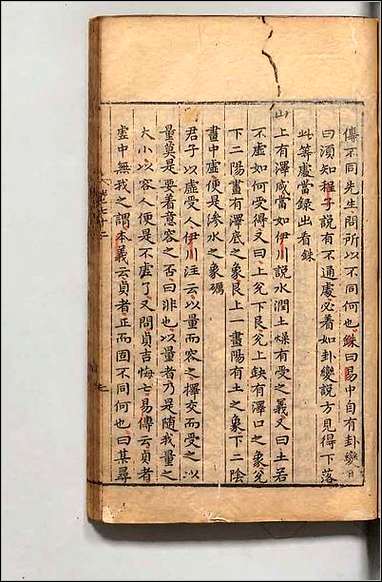 傳不同先生問所以不同何也銖曰易中自有卦變耳
曰須知程子說有不通處必着如卦變說方見得下落
此等處當錄出看銖
山上有澤咸當如伊川說水潤土燥有受之義又曰土若
不虛如何受得又曰上兌下艮兌上缺有澤口之象兌
下二陽畫有澤底之象艮上一畫陽有土之象下二陰
畫中虛便是滲水之象礪
君子以虛受人伊川注云以量而容之擇交而受之以
量莫是要着意容之否曰非也以量者乃是隨我量之
大小以容人便是不虛了又問貞吉悔亡易傳云貞者
虛中無我之謂本義云貞者正而固不同何也曰某尋